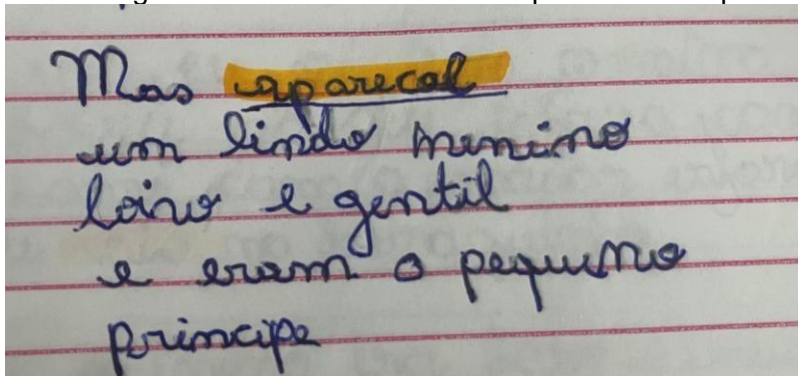 Mas aparecal
um lindo menino
loiro e gentil
e eram o pequeno
principe